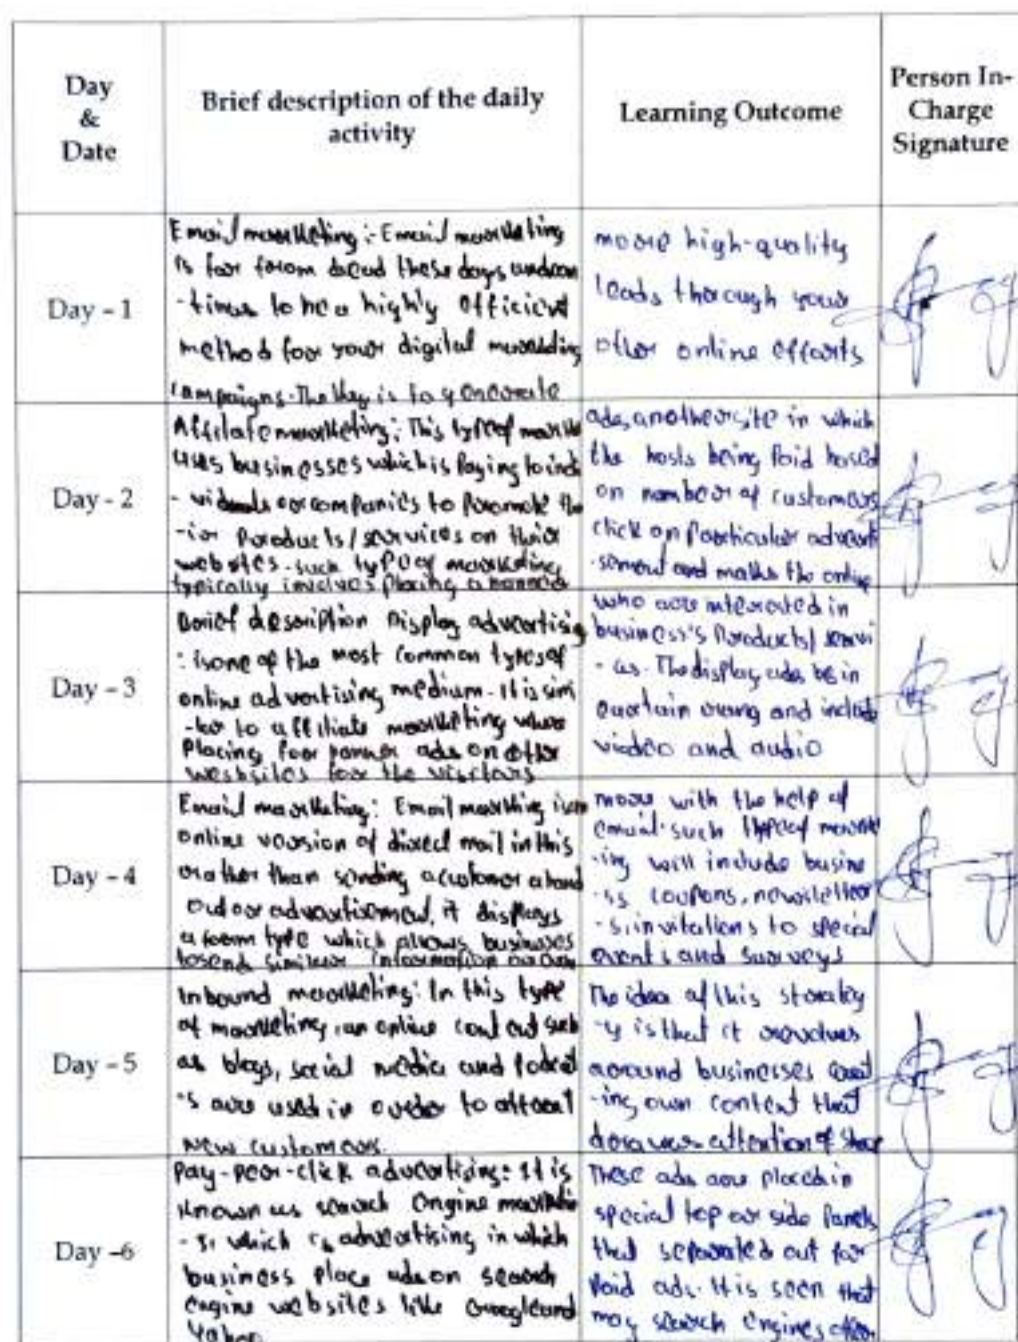 Day & Date
Brief description of the daily activity
Learning Outcome
Person In-Charge Signature
Day - 1
Email marketing :- Email marketing
is far from dead these days and con
-tinues to be a highly efficient
method for your digital marketing
campaigns. The key is to generate
more high-quality
leads through your
other online efforts
Day - 2
Affilate marketing : This type of
uses businesses which is Paying to indi
- viduals or companies to Promote the
-ir Products / services on their
websites. such type of marketing
typically involves placing a banner
ads, another site in which
the hosts being Paid based
on number of customers
click on Particular advert
-sement and makes the online
Day - 3
Brief description Display advertising
: is one of the most common types of
online advertising medium. It is simi
-lar to affiliate marketing where
Placing for banner ads on other
websites for the visitors
who are interested in
business's Products/ servi
The display ads be in
and include
video and audio
Day - 4
Email marketing : Email marketing is an
online version of direct mail in this
rather than sending a customer a hand
out or advertisement, it displays
a form type which allows businesses
to send similar information
more with the help of
email. such type of market
-ing will include busine
-ss coupons, newsletter
-s, invitations to special
events and surveys
Day - 5
Inbound marketing : In this type
of marketing, an online content such
as blogs, social media and
-s are used in order to attract
new customers.
The idea of this strateg
-y is that it revolves
around businesses creat
-ing own content that
draws attention of
Day -6
Pay-per-click advertising : It is
known as search engine
which is advertising in which
business place ads on search
engine websites like Google and
Yahoo
These ads are placed in
special top or side Panels
that separated out for
Paid ads. It is seen that
may search engines